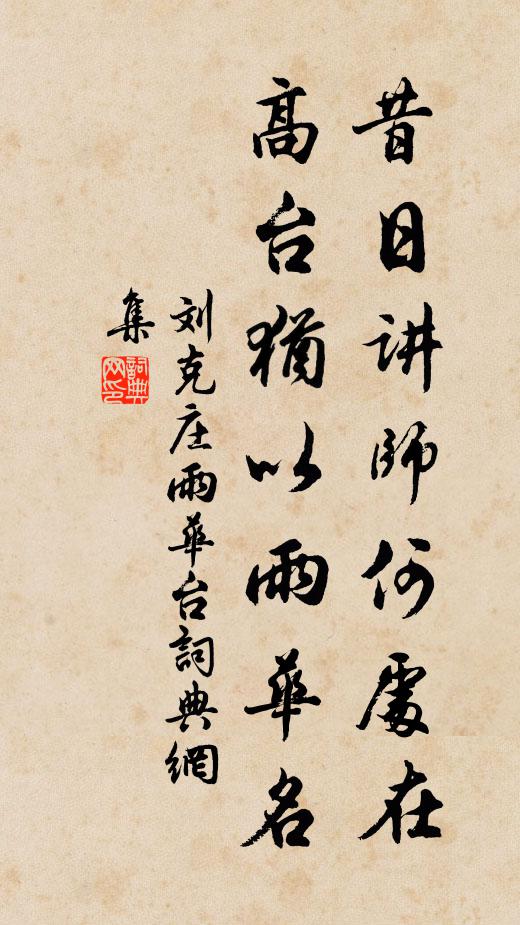 昔日讲師何處在
高台猶以雨華名
刘克庄雨華台詞典網
集
詞典
网印